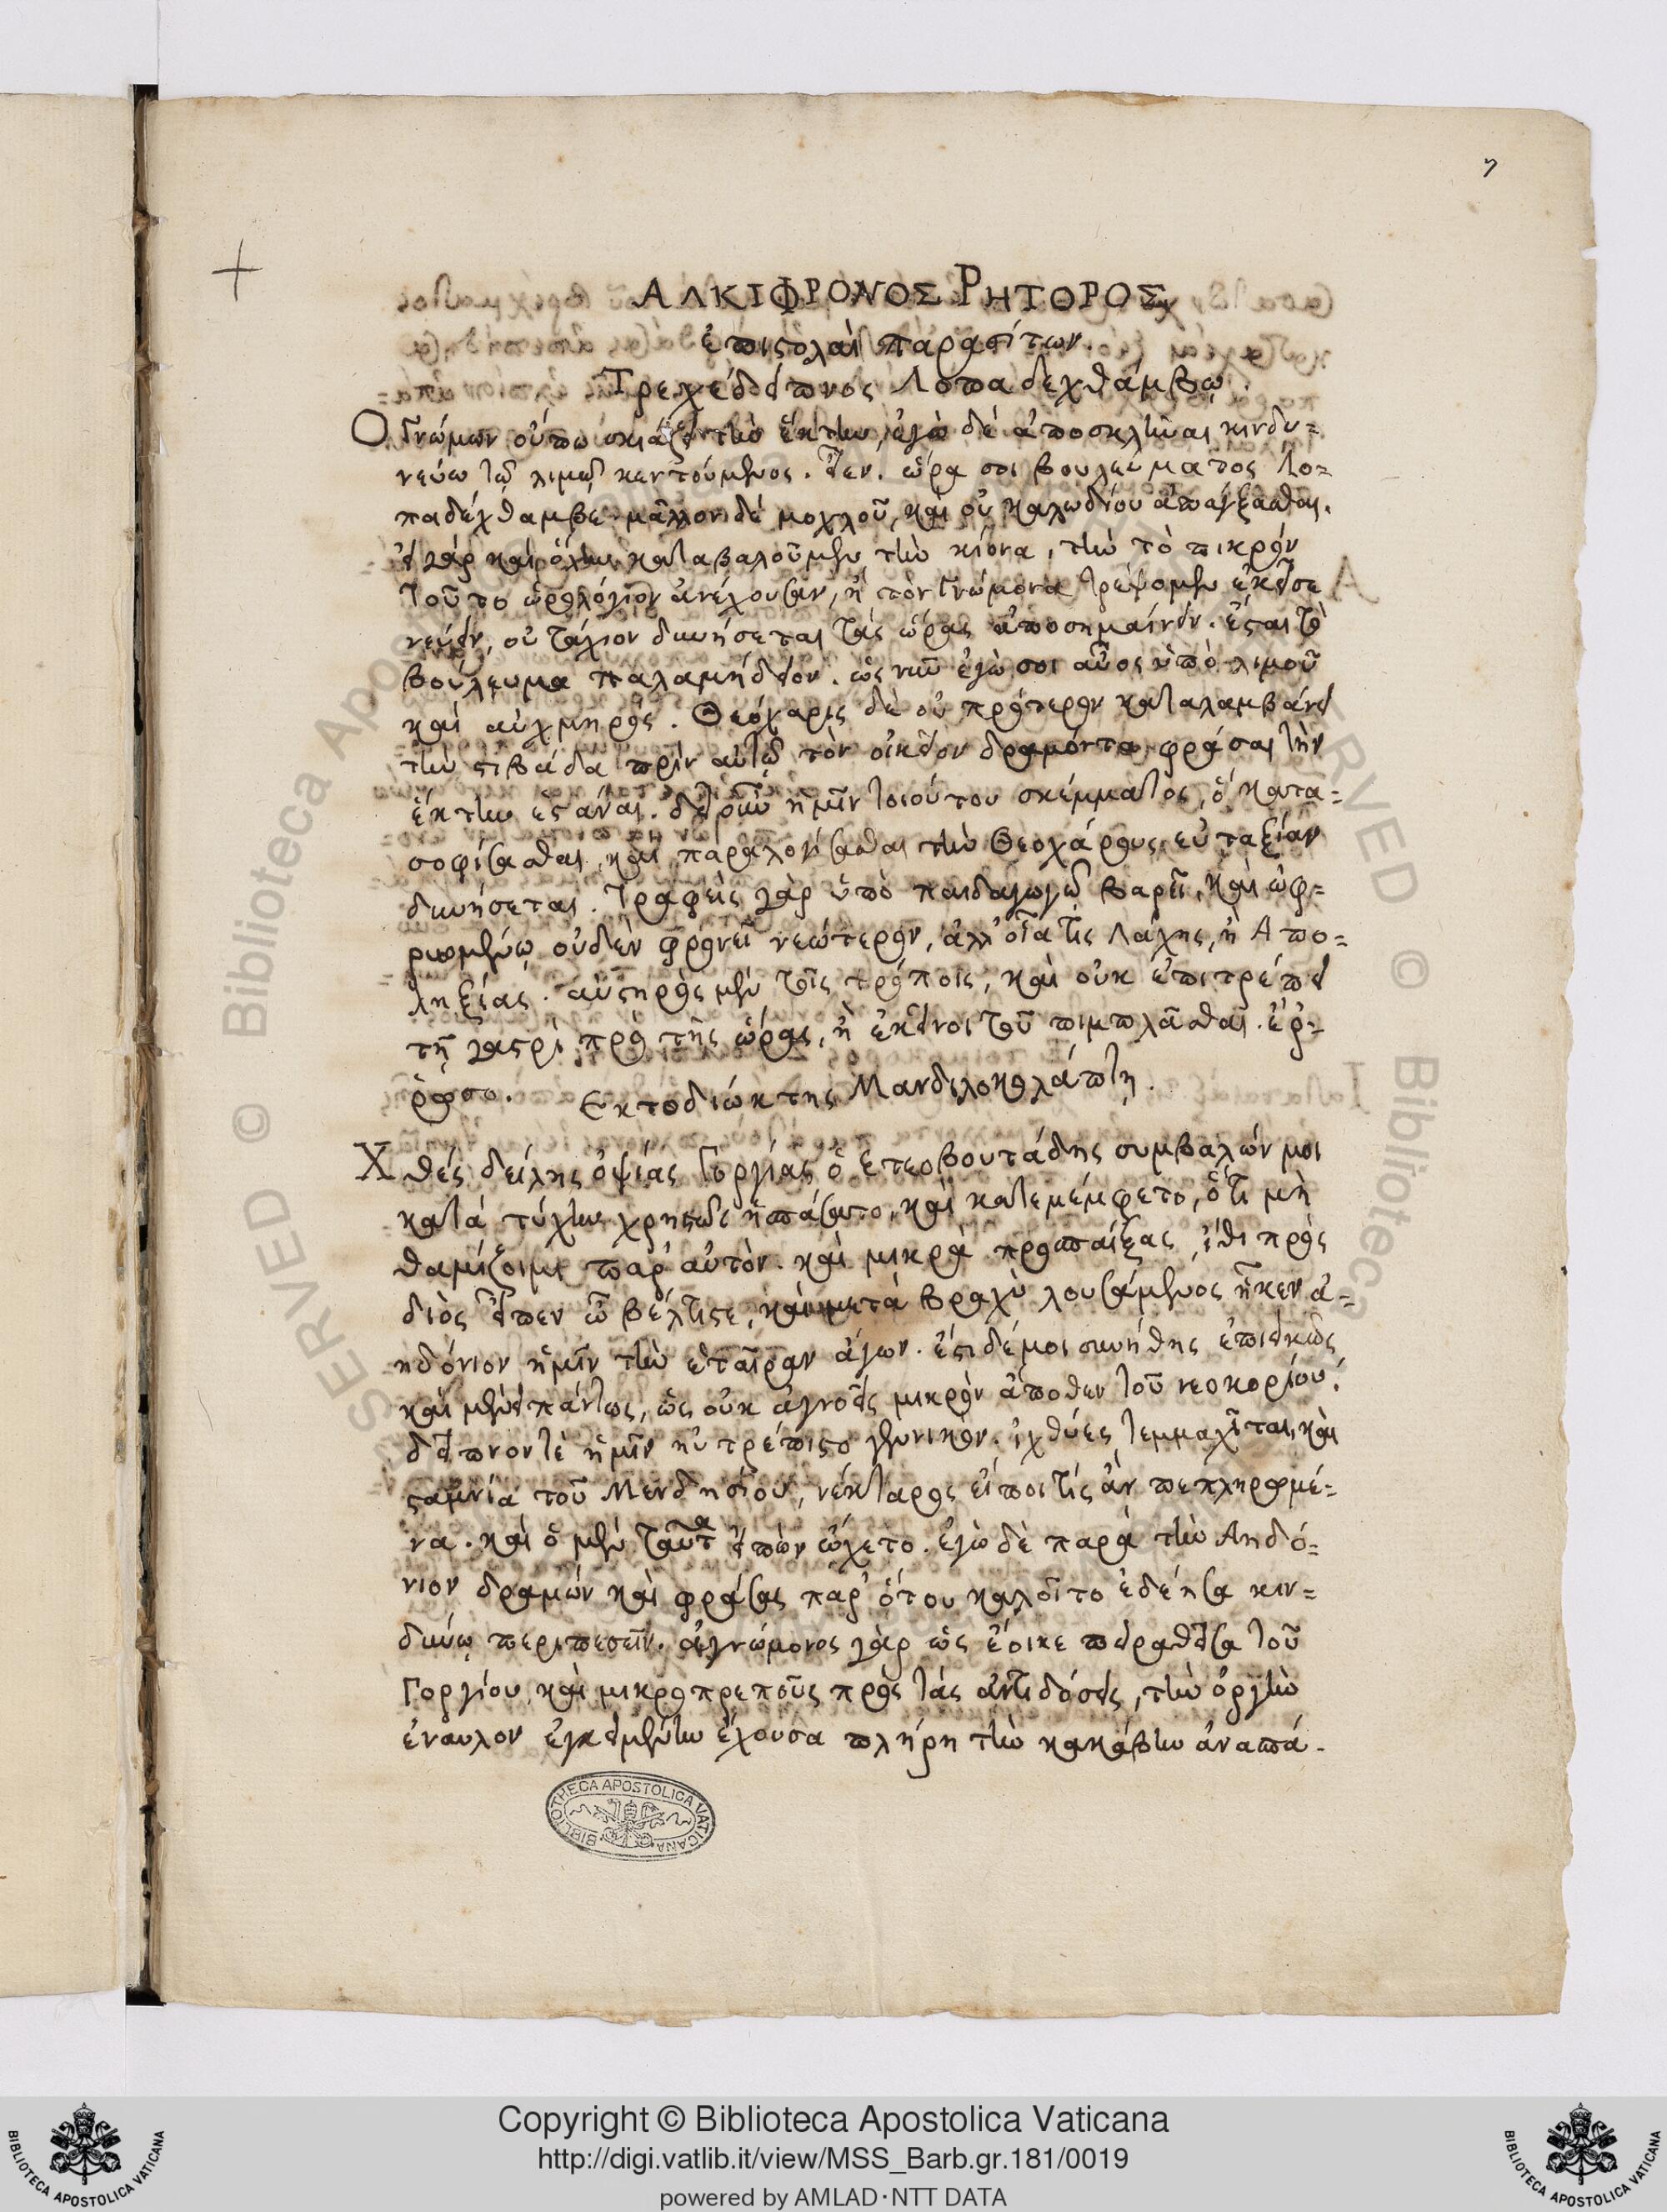 7
+
ΑΛΚΙΦΡΟΝΟΣ ΡΗΤΟΡΟΣ
ἐπιστολαὶ παρασίτων.
Τρεχέδειπνος Λοπαδεχθάμβῳ.
Ο Γνώμων οὔπω σκιάζει τὴν ἕκτην, ἐγὼ δὲ ἀποσκλῆναι κινδυ=
νεύω τῷ λιμῷ κεντούμενος. εἶεν. ὥρα σοι βουλεύματος Λο=
παδέχθαμβε· μᾶλλον δὲ μοχλοῦ, καὶ οὐ καλωδίου ἀπάγξασθαι.
εἰ γὰρ καὶ ὅλην καταβαλοῦμεν τὴν κίονα, τὴν τὸ πικρὸν
τοῦτο ὡρολόγιον ἀνέχουσαν, ἢ τὸν Γνώμονα τρέψομεν ἐκεῖσε
νεύειν, οὗ τάχιον δυνήσεται τὰς ὥρας ἀποσημαίνειν. ἔσται τὸ
βούλευμα παλαμήδειον. ὡς νῦν ἐγώ σοι αὖος ὑπὸ λιμοῦ
καὶ αὐχμηρός. Θεόχαρις δὲ οὐ πρότερον καταλαμβάνει
τὴν στιβάδα πρὶν αὐτῷ τὸν οἰκεῖον δραμόντα φράσαι τὴν
ἕκτην ἑστάναι. δεῖ οὖν ἡμῖν τοιούτου σκέμματος, ὃ κατα=
σοφίσασθαι, καὶ παραλογίσασθαι τὴν Θεοχάρους εὐταξίαν
δυνήσεται. τραφεὶς γὰρ ὑπὸ παιδαγωγῷ βαρεῖ, καὶ ὠφ=
ρυωμένῳ οὐδὲν φρονεῖ νεώτερον, ἀλλ' οἷα τις Λάχης, ἢ Απο=
ληξίας. αὐστηρὸς μὲν τοῖς τρόποις, καὶ οὐκ ἐπιτρέπει
τῇ γαστρὶ πρὸ τῆς ὥρας, ἢ ἐκεῖνοι τοῦ πιμπλᾶσθαι. ἔρ=
ῥωσο. Εκτοδιώκτης Μανδιλοκολάπτῃ.
Χθὲς δείλης ὀψίας Γοργίας ὁ ἑτεοβουτάδης συμβαλών μοι
κατὰ τύχην χρηστῶς ἠσπάσατο, καὶ κατεμέμφετο, ὅτι μὴ
θαμίζοιμι παρ' αὐτόν. καὶ μικρὰ προσπαίξας, ἴθι πρὸς
διὸς εἶπεν ὦ βέλτιστε, καὶ μετὰ βραχὺ λουσάμενος ἧκεν ἀ=
ηδόνιον ἡμῖν τὴν ἑταῖραν ἄγων. ἔστι δέ μοι συνήθης ἐπιεικῶς
καὶ μένει πάντως, ὡς οὐκ ἀγνοεῖς μικρὸν ἄποθεν τοῦ νεοκορίου.
δεῖπνον τὲ ἡμῖν ηὐτρέπιστο γεννικόν. ἰχθύες τεμμαχῖται, καὶ
σταμνία τοῦ Μενδησίου, νέκταρος εἴποι τίς ἂν πεπληρωμέ=
να. καὶ ὁ μὲν ταῦτα εἰπὼν ᾤχετο. ἐγὼ δὲ παρὰ τὴν Αηδό=
νιον δραμὼν καὶ φράσας παρ' ὅτου καλοῖτο ἐδέησα κιν=
δύνῳ περιπεσεῖν. ἀγνώμονος γὰρ ὡς ἔοικε πειραθεῖσα τοῦ
Γοργίου, καὶ μικροπρεποῦς πρὸς τὰς ἀντιδόσεις, τὴν ὀργὴν
ἔναυλον ἐγκειμένην ἔχουσα πλήρη τὴν κακάβην ἀναπά-
BIBLIOTHECA APOSTOLICA VATICANA
Copyright © Biblioteca Apostolica Vaticana
http://digi.vatlib.it/view/MSS_Barb.gr.181/0019
powered by AMLAD·NTT DATA
BIBLIOTECA APOSTOLICA VATICANA
BIBLIOTECA APOSTOLICA VATICANA